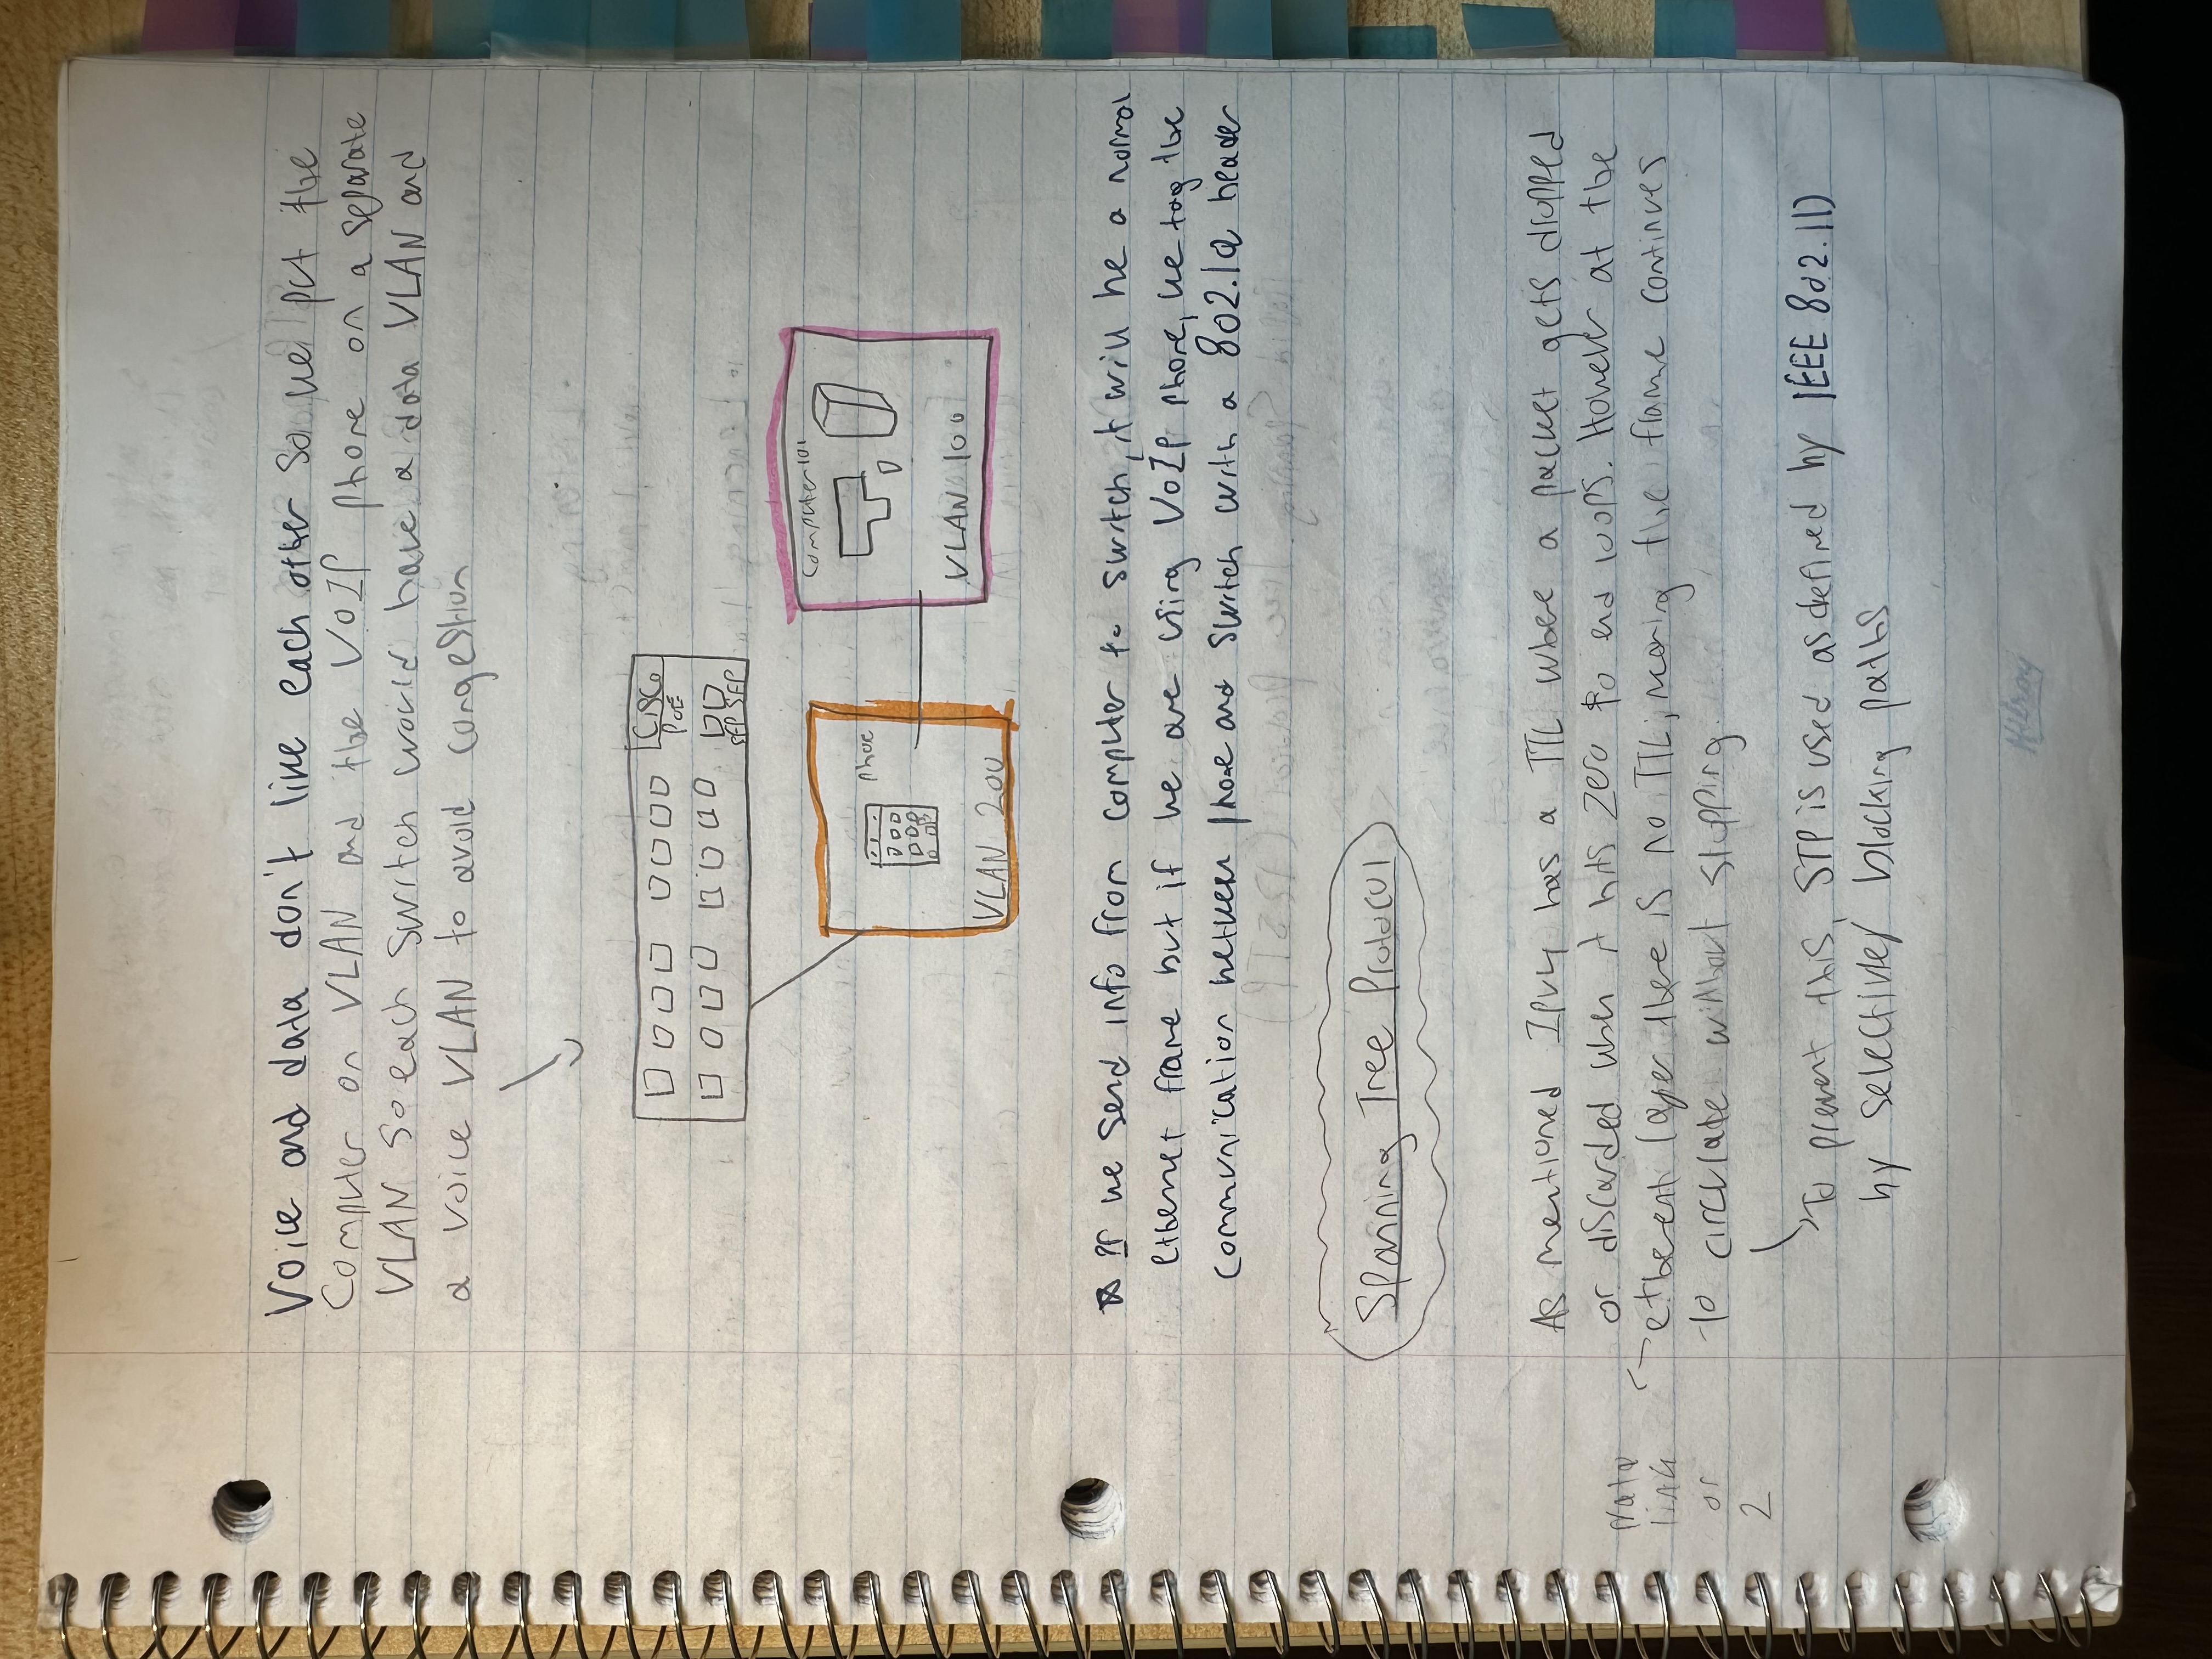 Voice and data don't like each other so we put the
Computer on VLAN and the VoIP phone on a separate
VLAN so each switch would have a data VLAN and
a voice VLAN to avoid congestion
CISCO
PoE
SFP SFP
phoe
VLAN 200
Computer 101
VLAN 100
If we send info from computer to switch, it will be a normal
ethernet frame but if we are using VoIP phone, we tag the
communication between phone and switch with a 802.1Q header
Spanning Tree Protocol
As mentioned IPv4 has a TTL where a packet gets dropped
or discarded when it hits zero to end loops. However at the
etherent layer there is no TTL, meaning the frame continues
to circulate without stopping.
Data
link
or
2
To prevent this, STP is used as defined by IEEE 802.1D
by selectivley blocking paths
Hilroy